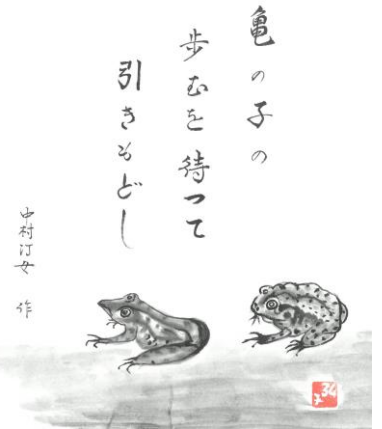 亀の子の
歩むを待つて
引きもどし
中村汀女 作